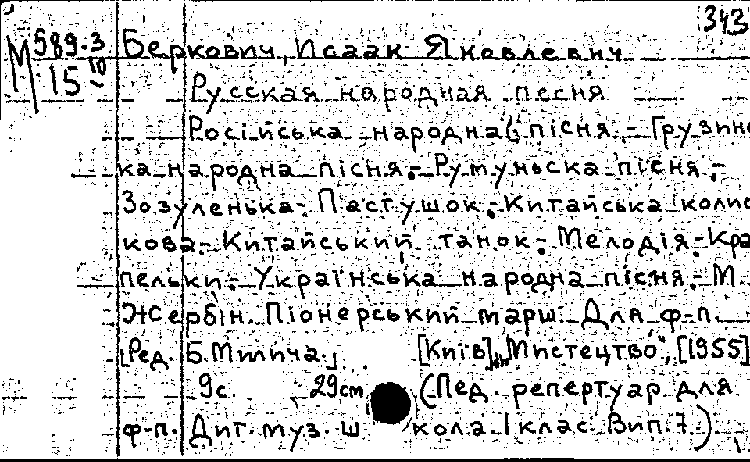 343
М 589.3
15 10
Беркович, Исаак Яковлевич
Русская народная песня
Російська народна пісня.- Грузинс
ка народна пісня.- Румунська пісня.-
Зозуленька.- Пастушок.- Китайська колис
кова.- Китайський танок.- Мелодія.- Кра
пельки.- Українська народна пісня.- М.
Жербін. Піонерський марш. Для ф-п.
[Ред. Б. Милича.] ... [Київ], "Мистецтво", [1955]
9с. 29см (Пед. репертуар для
ф-п. Дит. муз. школа. 1 клас. Вип. 7.)